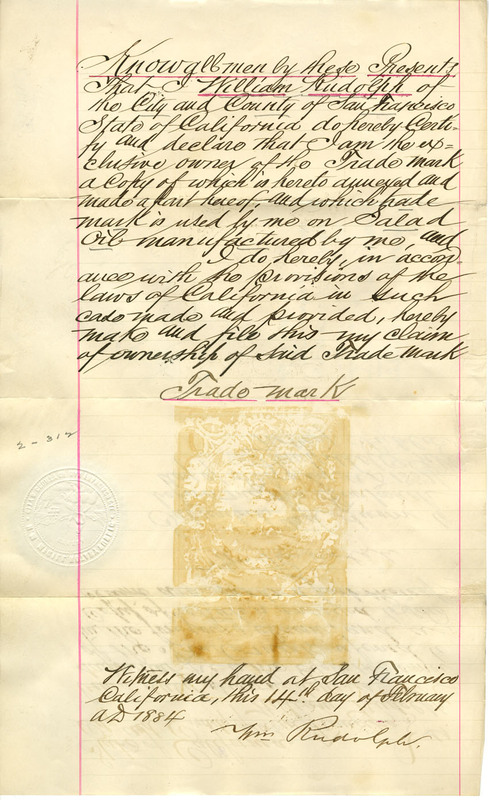 Know all men by these Presents
That I William Rudolph of
the City and County of San Francisco
State of California do hereby Certi-
fy and declare that I am the ex-
clusive owner of the Trade mark
a Copy of which is hereto annexed and
made a part hereof, and which trade
mark is used by me on Salad
Oil manufactured by me, and
I do hereby, in accor-
dance with the provisions of the
laws of California in such
case made and provided, hereby
make and file this my claim
of ownership of said Trade Mark
Trade mark
2-312
Witness my hand at San Francisco
California, this 14th day of February
AD 1884
Wm Rudolph.